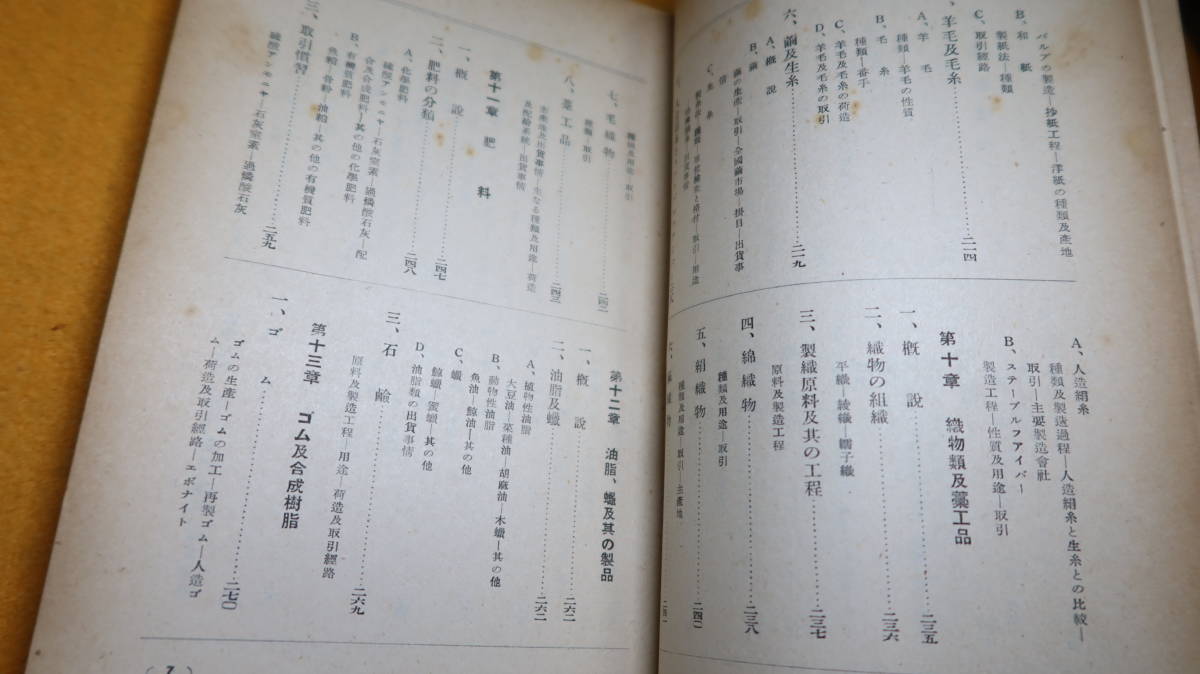 パルプの製造―抄紙工程―洋紙の種類及産地
B、和紙
製紙法―種類
C、取引經路
五、羊毛及毛糸……二一四
A、羊毛
種類―羊毛の性質
B、毛糸
種類―番手
C、羊毛及毛糸の荷造
D、羊毛及毛糸の取引
六、繭及生糸……二一九
A、概説
B、繭
繭の生産―取引―全國繭市場―掛目―出貨事
情
C、生糸
A、人造絹糸
種類及製造過程―人造絹糸と生糸との比較―
取引―主要製造會社
B、ステープルフアイバー
製造工程―性質及用途―取引
第十章 織物類及藁工品
一、概説……二三五
二、織物の組織……二三六
平織―綾織―繻子織
三、製織原料及其の工程……二三七
原料及製造工程
四、綿織物……二三八
種類及用途―取引
五、絹織物……二四〇
種類及用途―取引―主産地
種類及用途―取引
七、毛織物……二四二
種類―取引
八、藁工品……二四三
主産地及出貨事情―主なる種類及用途―荷造
及配給系統―出貨事情
第十一章 肥料
一、概説……二四七
二、肥料の分類……二四八
A、化學肥料
硫酸アンモニヤ―石灰窒素―過燐酸石灰―配
合及合成肥料―其の他の化學肥料
B、有機質肥料
魚粕―骨粉―油粕―其の他の有機質肥料
三、取引慣習……二五九
硫酸アンモニヤ―石灰窒素―過燐酸石灰
第十二章 油脂、蠟及其の製品
一、概説……二六二
二、油脂及蠟……二六二
A、植物性油脂
大豆油―菜種油―胡麻油―木蠟―其の他
B、動物性油脂
魚油―鯨油―其の他
C、蠟
鯨蠟―蜜蠟―其の他
D、油脂類の出貨事情
三、石鹼……二六九
原料及製造工程―用途―荷造及取引經路
第十三章 ゴム及合成樹脂
一、ゴム……二七〇
ゴムの生産―ゴムの加工―再製ゴム―人造ゴ
ム―荷造及取引經路―エボナイト
(7)